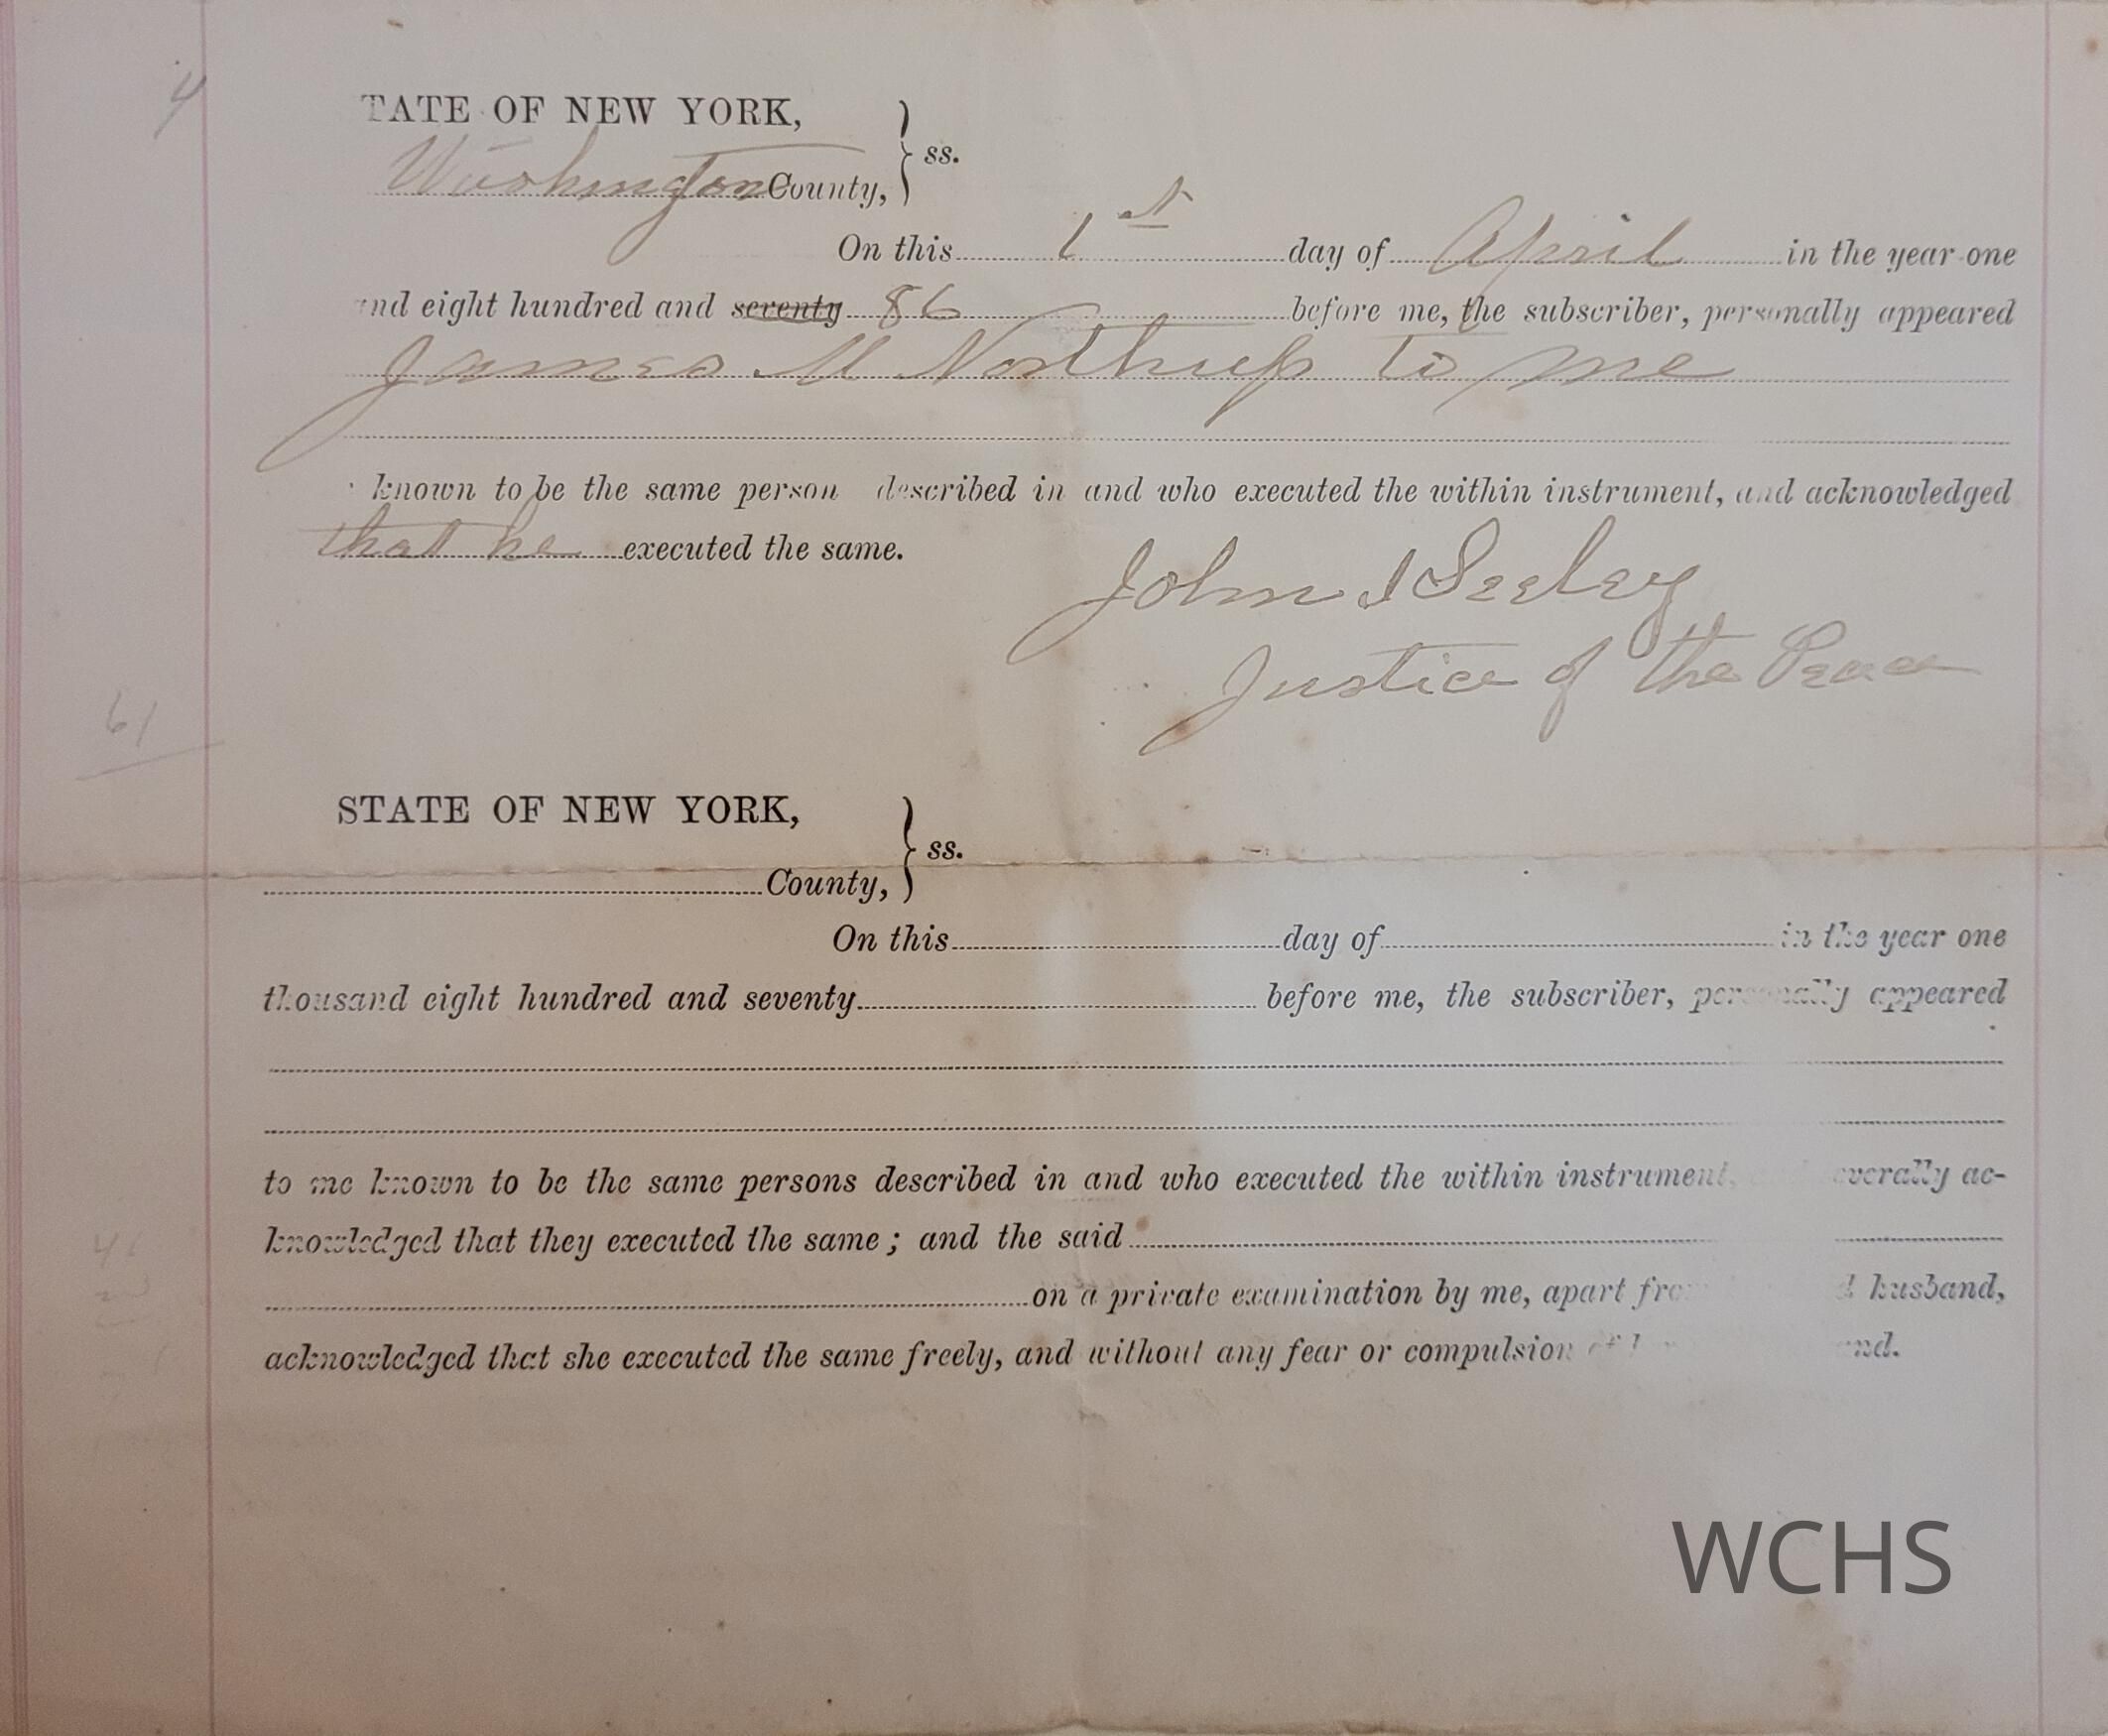 4
TATE OF NEW YORK,
Washington County, } ss.
On this 1st day of April in the year one
nd eight hundred and seventy 86 before me, the subscriber, personally appeared
James M Northup to me
known to be the same person described in and who executed the within instrument, and acknowledged
that he executed the same.
John I Seeley
Justice of the Peace
61
STATE OF NEW YORK,
County, } ss.
On this day of in the year one
thousand eight hundred and seventy before me, the subscriber, personally appeared
to me known to be the same persons described in and who executed the within instrument, verally ac-
knowledged that they executed the same; and the said
on a private examination by me, apart from husband,
acknowledged that she executed the same freely, and without any fear or compulsion of nd.
WCHS